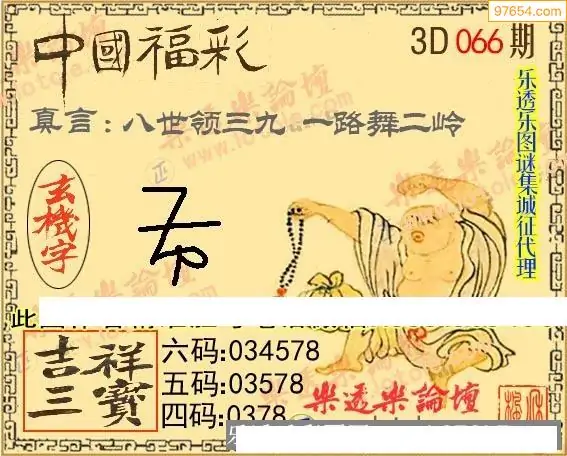 97654.com
中國福彩
3D 066期
真言:八世领三九 一路舞二岭
乐透乐图谜集城征代理
玄機字
此
吉祥三寶
六码:034578
五码:03578
四码:0378
樂透樂論壇